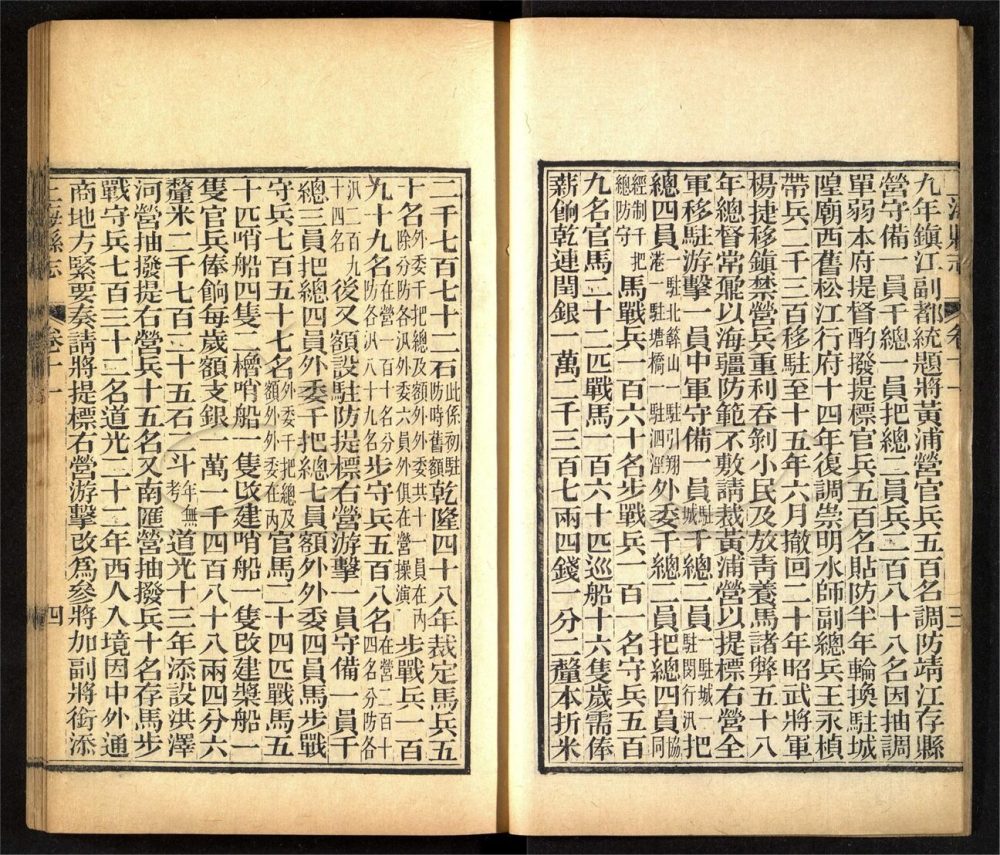 上海縣志 卷十一 三
九年鎮江副都統題將黃浦營官兵五百名調防靖江存縣
營守備一員千總一員把總二員兵二百八十八名因抽調
單弱本府提督酌撥提標官兵五百名貼防半年輪換駐城
隍廟西舊松江行府十四年復調崇明水師副總兵王永楨
帶兵二千三百移駐至十五年六月撤回二十年昭武將軍
楊捷移鎮禁營兵重利吞剝小民及放青養馬諸弊五十八
年總督常鼐以海疆防範不敷請裁黃浦營以提標右營全
軍移駐游擊一員中軍守備一員駐城千總二員一駐城一駐閔行汛把
總四員一駐北簳山一駐引翔港一駐塘橋一駐泗涇外委千總二員把總四員協同
經制千把總防守馬戰兵一百六十名步戰兵一百一名守兵五百
九名官馬二十二匹戰馬一百六十匹巡船十六隻歲需俸
薪餉乾連閏銀一萬二千三百七兩四錢一分二釐本折米
二千七百七十二石此係初駐防時舊額乾隆四十八年裁定馬兵五
十名外委千把總及額外外委共十一員在內除分防各汛外委六員外俱在營操演步戰兵一百
九十九名在營一百十名分防各汛八十九名步守兵五百八名在營二百十四名分防各
汛二百九十四名後又額設駐防提標右營游擊一員守備一員千
總三員把總四員外委千把總七員額外外委四員馬步戰
守兵七百五十七名外委千把總及額外外委在內官馬二十四匹戰馬五
十匹哨船四隻二櫓哨船一隻改建哨船一隻改建槳船一
隻官兵俸餉每歲額支銀一萬一千四百八十八兩四分六
釐米二千七百二十五石二斗年無考道光十三年添設洪澤
河營抽撥提右營兵十五名又南匯營抽撥兵十名存馬步
戰守兵七百三十二名道光二十二年西人入境因中外通
商地方緊要奏請將提標右營游擊改爲參將加副將銜添
上海縣志 卷十一 四